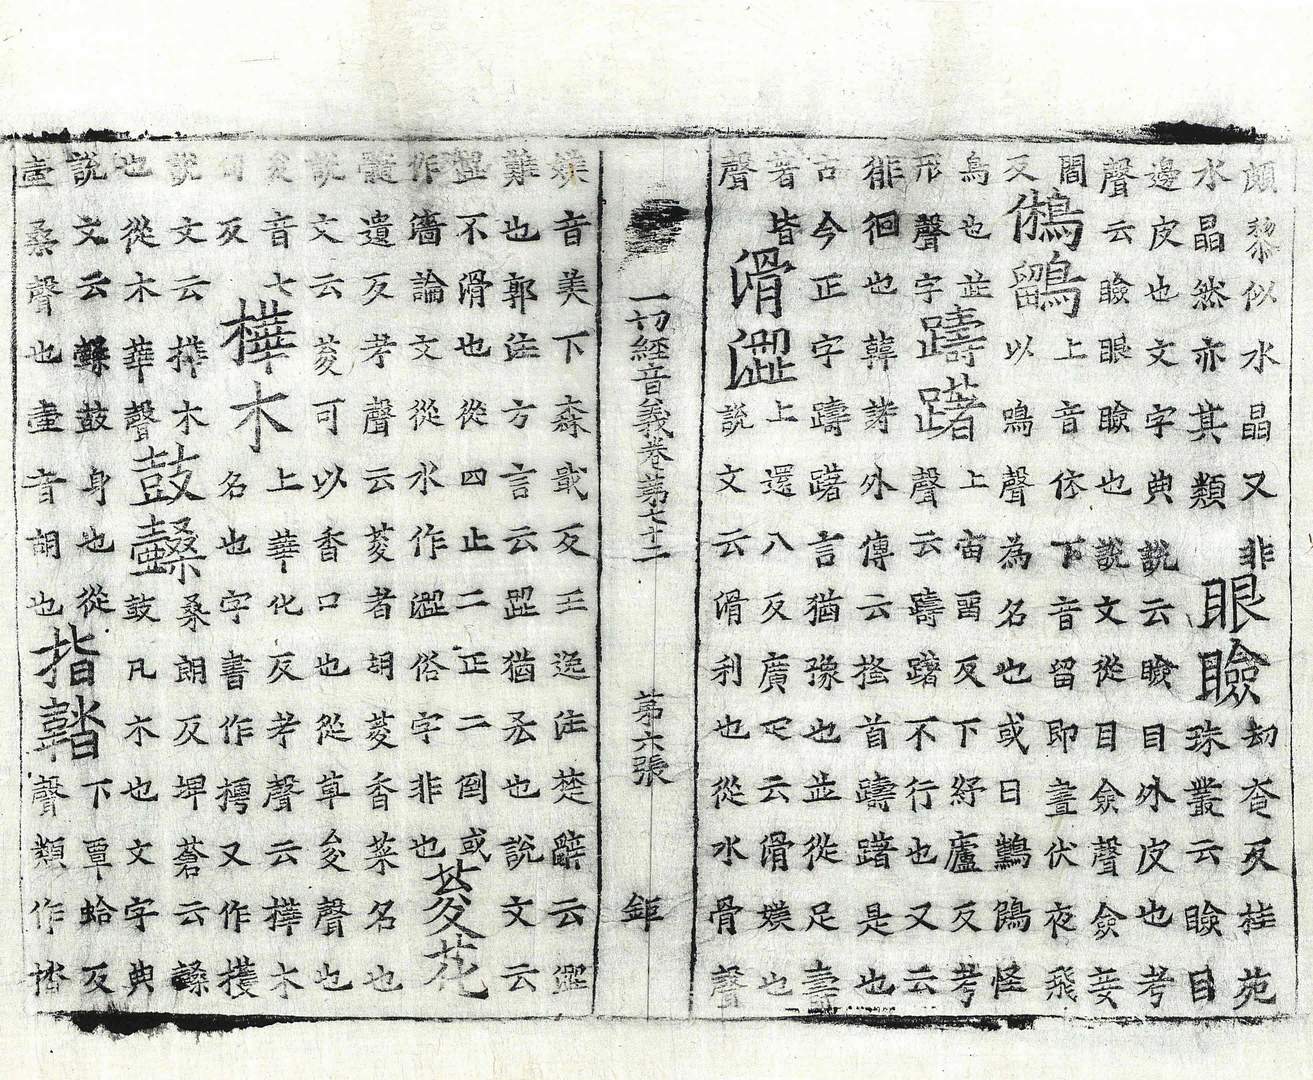 頗黎似水晶又非
水晶然亦其類
眼瞼
劫奄反桂苑
珠叢云瞼目
邊皮也文字典說云瞼目外皮也考
聲云瞼眼瞼也說文從目僉聲僉妾
閻
反
鵂鶹
上音休下音留即晝伏夜飛
以鳴聲為名也或曰怪
鳥也並
形聲字
躊躇
上宙留反下紓廬反考
聲云躊躇不行也又云
徘徊也韓詩外傳云搔首躊躇是也
古今正字躊躇言猶豫也並從足壽
著皆
聲
滑澀
上還八反廣疋云滑媄也
說文云滑利也從水骨聲
一切經音義卷第七十二 第六張 鉅
媄音美下森戢反王逸注楚辭云澀
難也郭注方言云歰猶吝也說文云
歰不滑也從四止二正二倒或
作濇論文從水作澀俗字非也
荾花
髓遺反考聲云荾者胡荾香菜名也
說文云荾可以香口也從草夋聲也
夋音七
旬反
樺木
上華化反考聲云樺木
名也字書作㭉又作檴
說文云樺木
也從木華聲
鼓
桑朗反埤蒼云
鼓凡木也文字典
說文云鼓身也從
壴桑聲也壴音胡也
指
下覃蛤反
聲類作